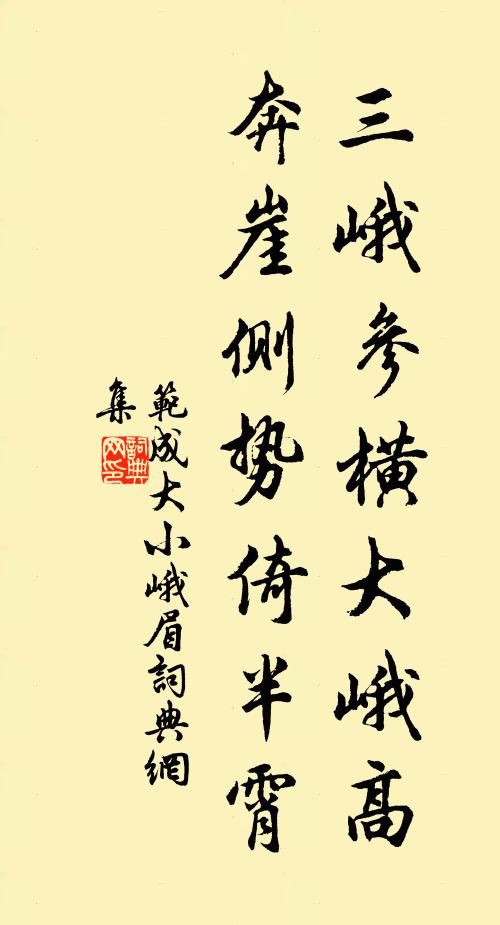 三峨參橫大峨高
奔崖側勢倚半霄
範成大小峨眉詞典網
集
詞典網印